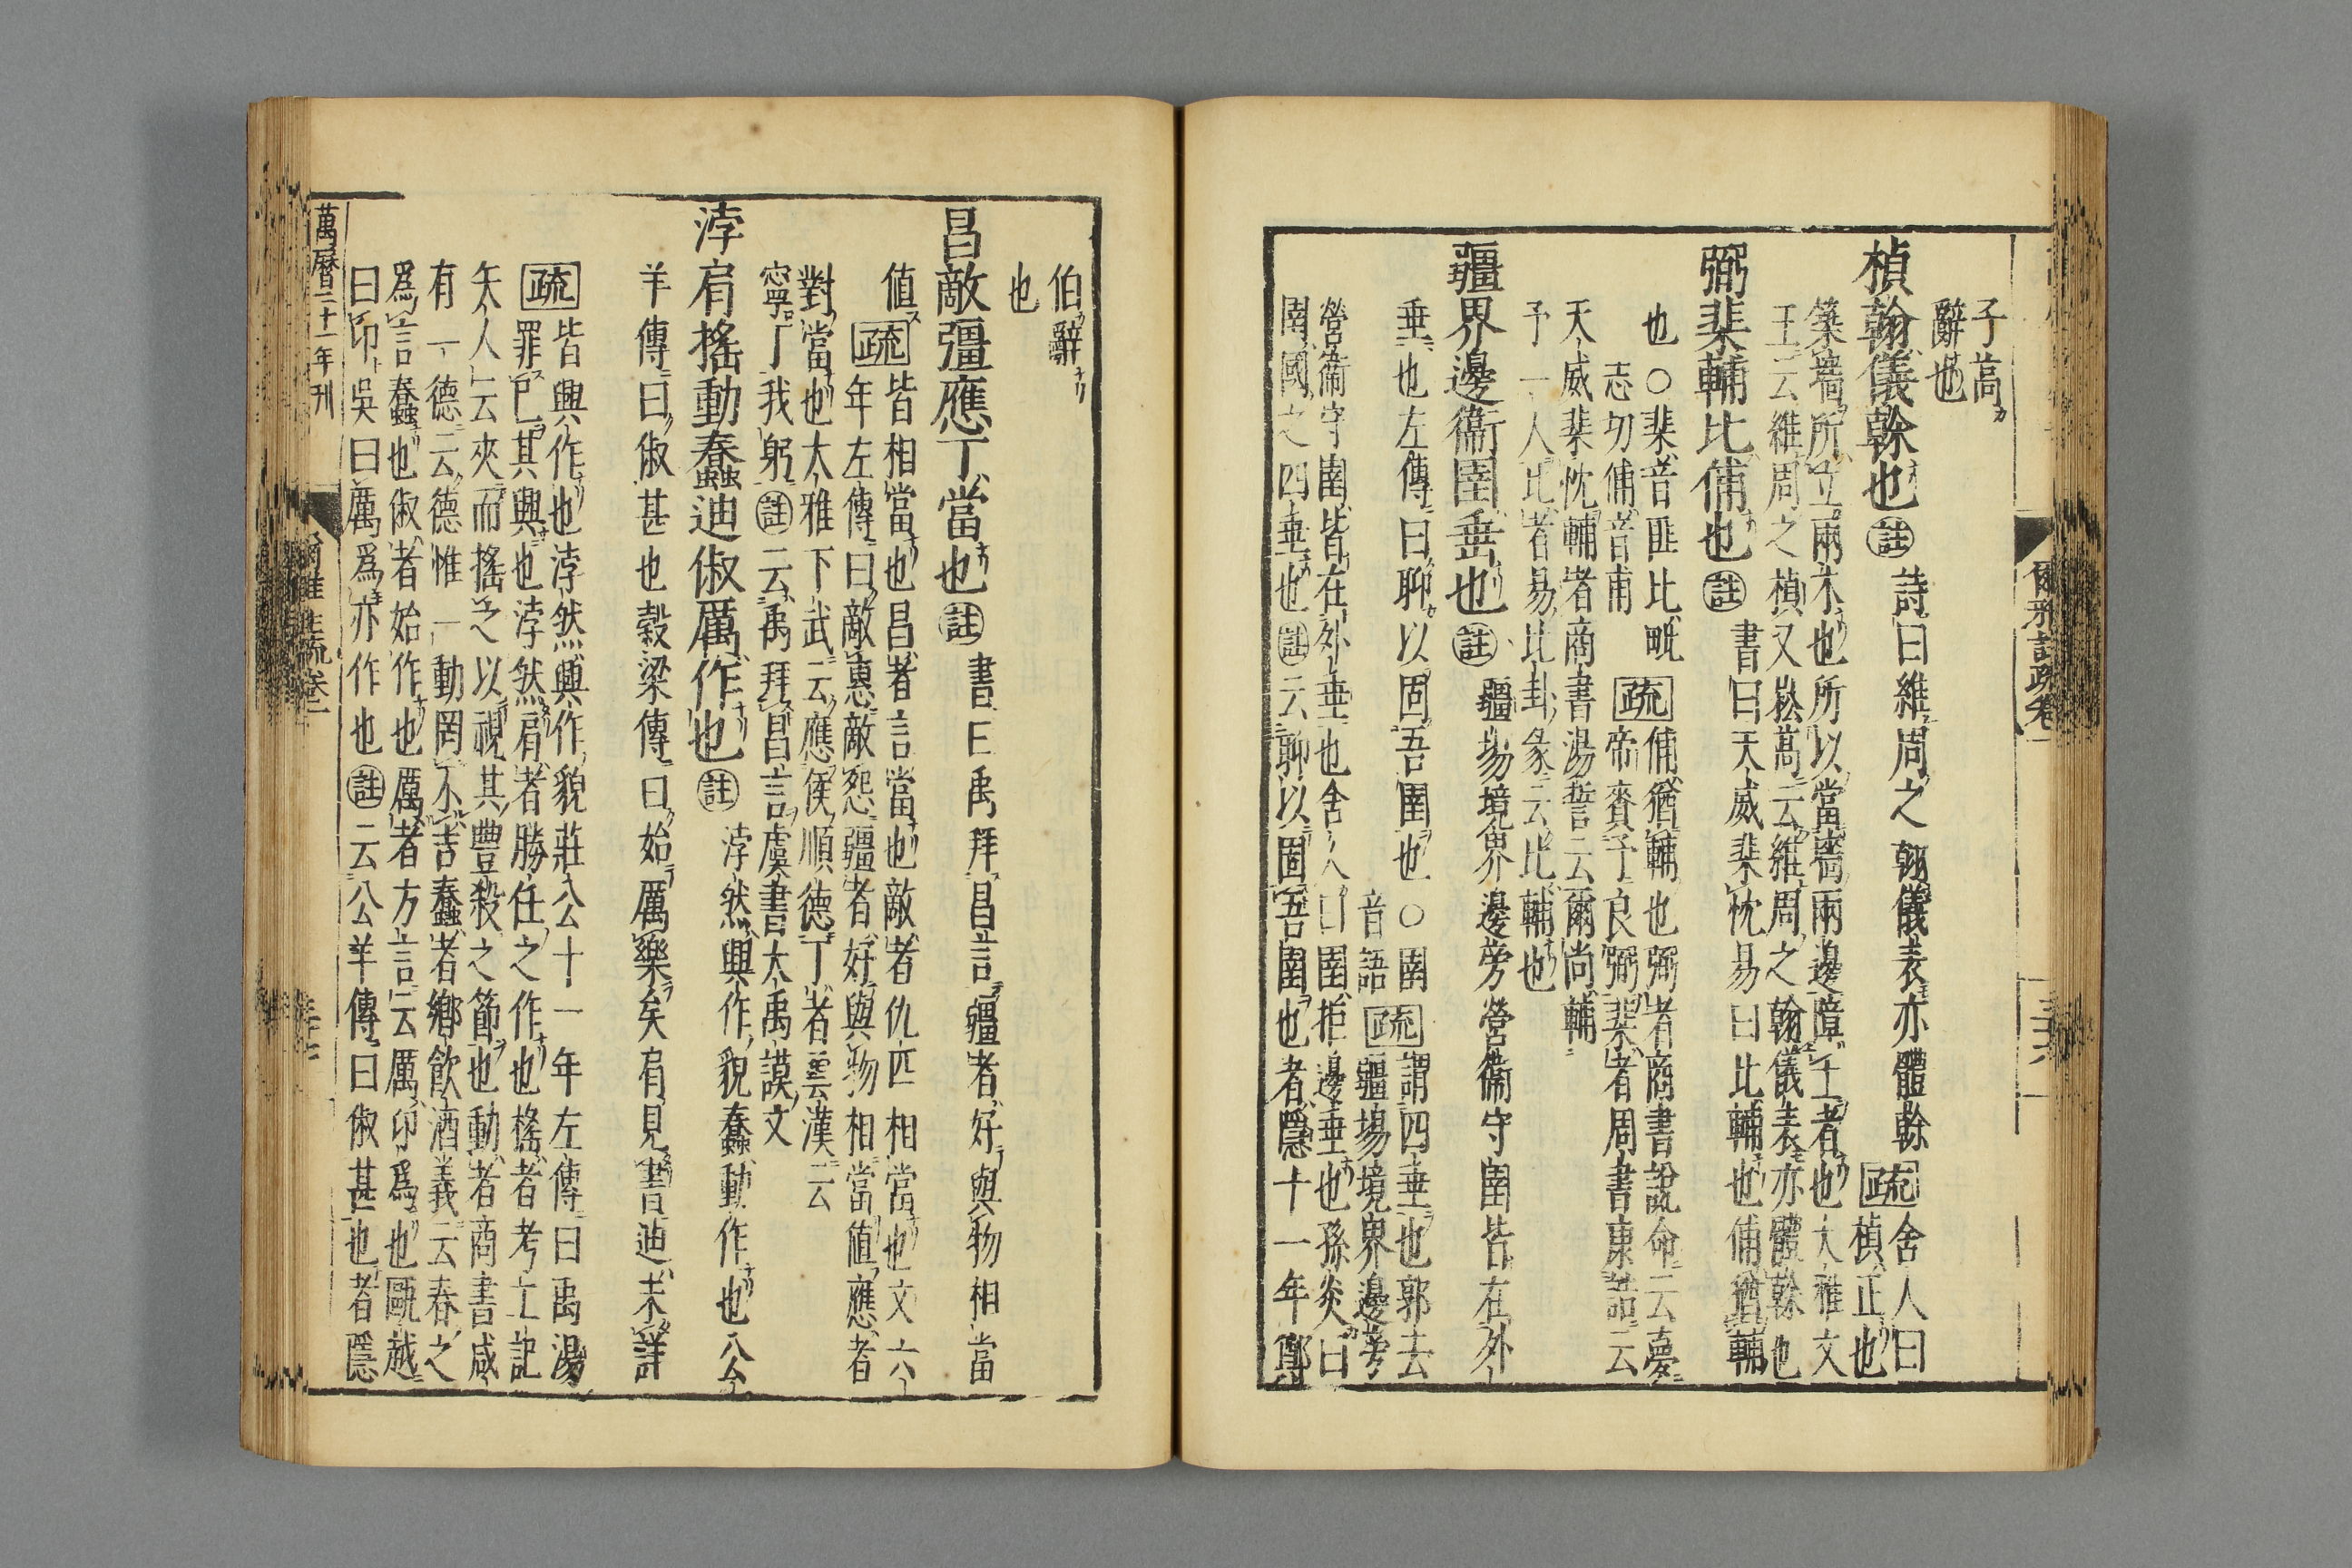 子高
辭也
楨翰儀榦也註詩曰維周之翰儀表亦體榦疏舍人曰
楨正也
築牆所立兩木也所以當牆兩邊障土者也大雅文
王云維周之楨又崧高云維周之翰儀表亦體榦也
弼棐輔比俌也註書曰天威棐忱易曰比輔也俌猶輔
也○棐音匪比毗
志切俌音甫疏俌猶輔也弼者商書說命云夢
帝賚予良弼棐者周書康誥云
天威棐忱輔者商書湯誓云爾尚輔
予一人比者易比卦彖云比輔也
疆界邊衞圉垂也註疆埸境界邊旁營衞守圉皆在外
垂也左傳曰聊以固吾圉也○圉
音語疏謂四垂也郭云
疆埸境界邊旁
營衞守圉皆在外垂也舍人曰圉拒邊垂也孫炎曰
圉國之四垂也註云聊以固吾圉也者隱十一年鄭
爾雅註疏卷一
三十六
伯辭
也
昌敵彊應丁當也註書曰禹拜昌言彊者好與物相當
值疏皆相當也昌者言當也敵者仇匹相當也文六
年左傳曰敵惠敵怨彊者好與物相當值應者
對當也大雅下武云應侯順德丁者雲漢云
寧丁我躬註云禹拜昌言虞書大禹謨文
浡肩搖動蠢迪俶厲作也註浡然興作貌蠢動作也公
羊傳曰俶甚也穀梁傳曰始厲樂矣肩見書迪未詳
疏皆興作也浡然興作貌莊公十一年左傳曰禹湯
罪己其興也浡然肩者勝任之作也搖者考工記
矢人云夾而搖之以視其豐殺之節也動者商書咸
有一德云德惟一動罔不吉蠢者鄉飲酒義云春之
爲言蠢也俶者始作也厲者方言云厲卬爲也甌越
曰卬吳曰厲爲亦作也註云公羊傳曰俶甚也者隱
萬曆二十一年刊
爾雅註疏卷二